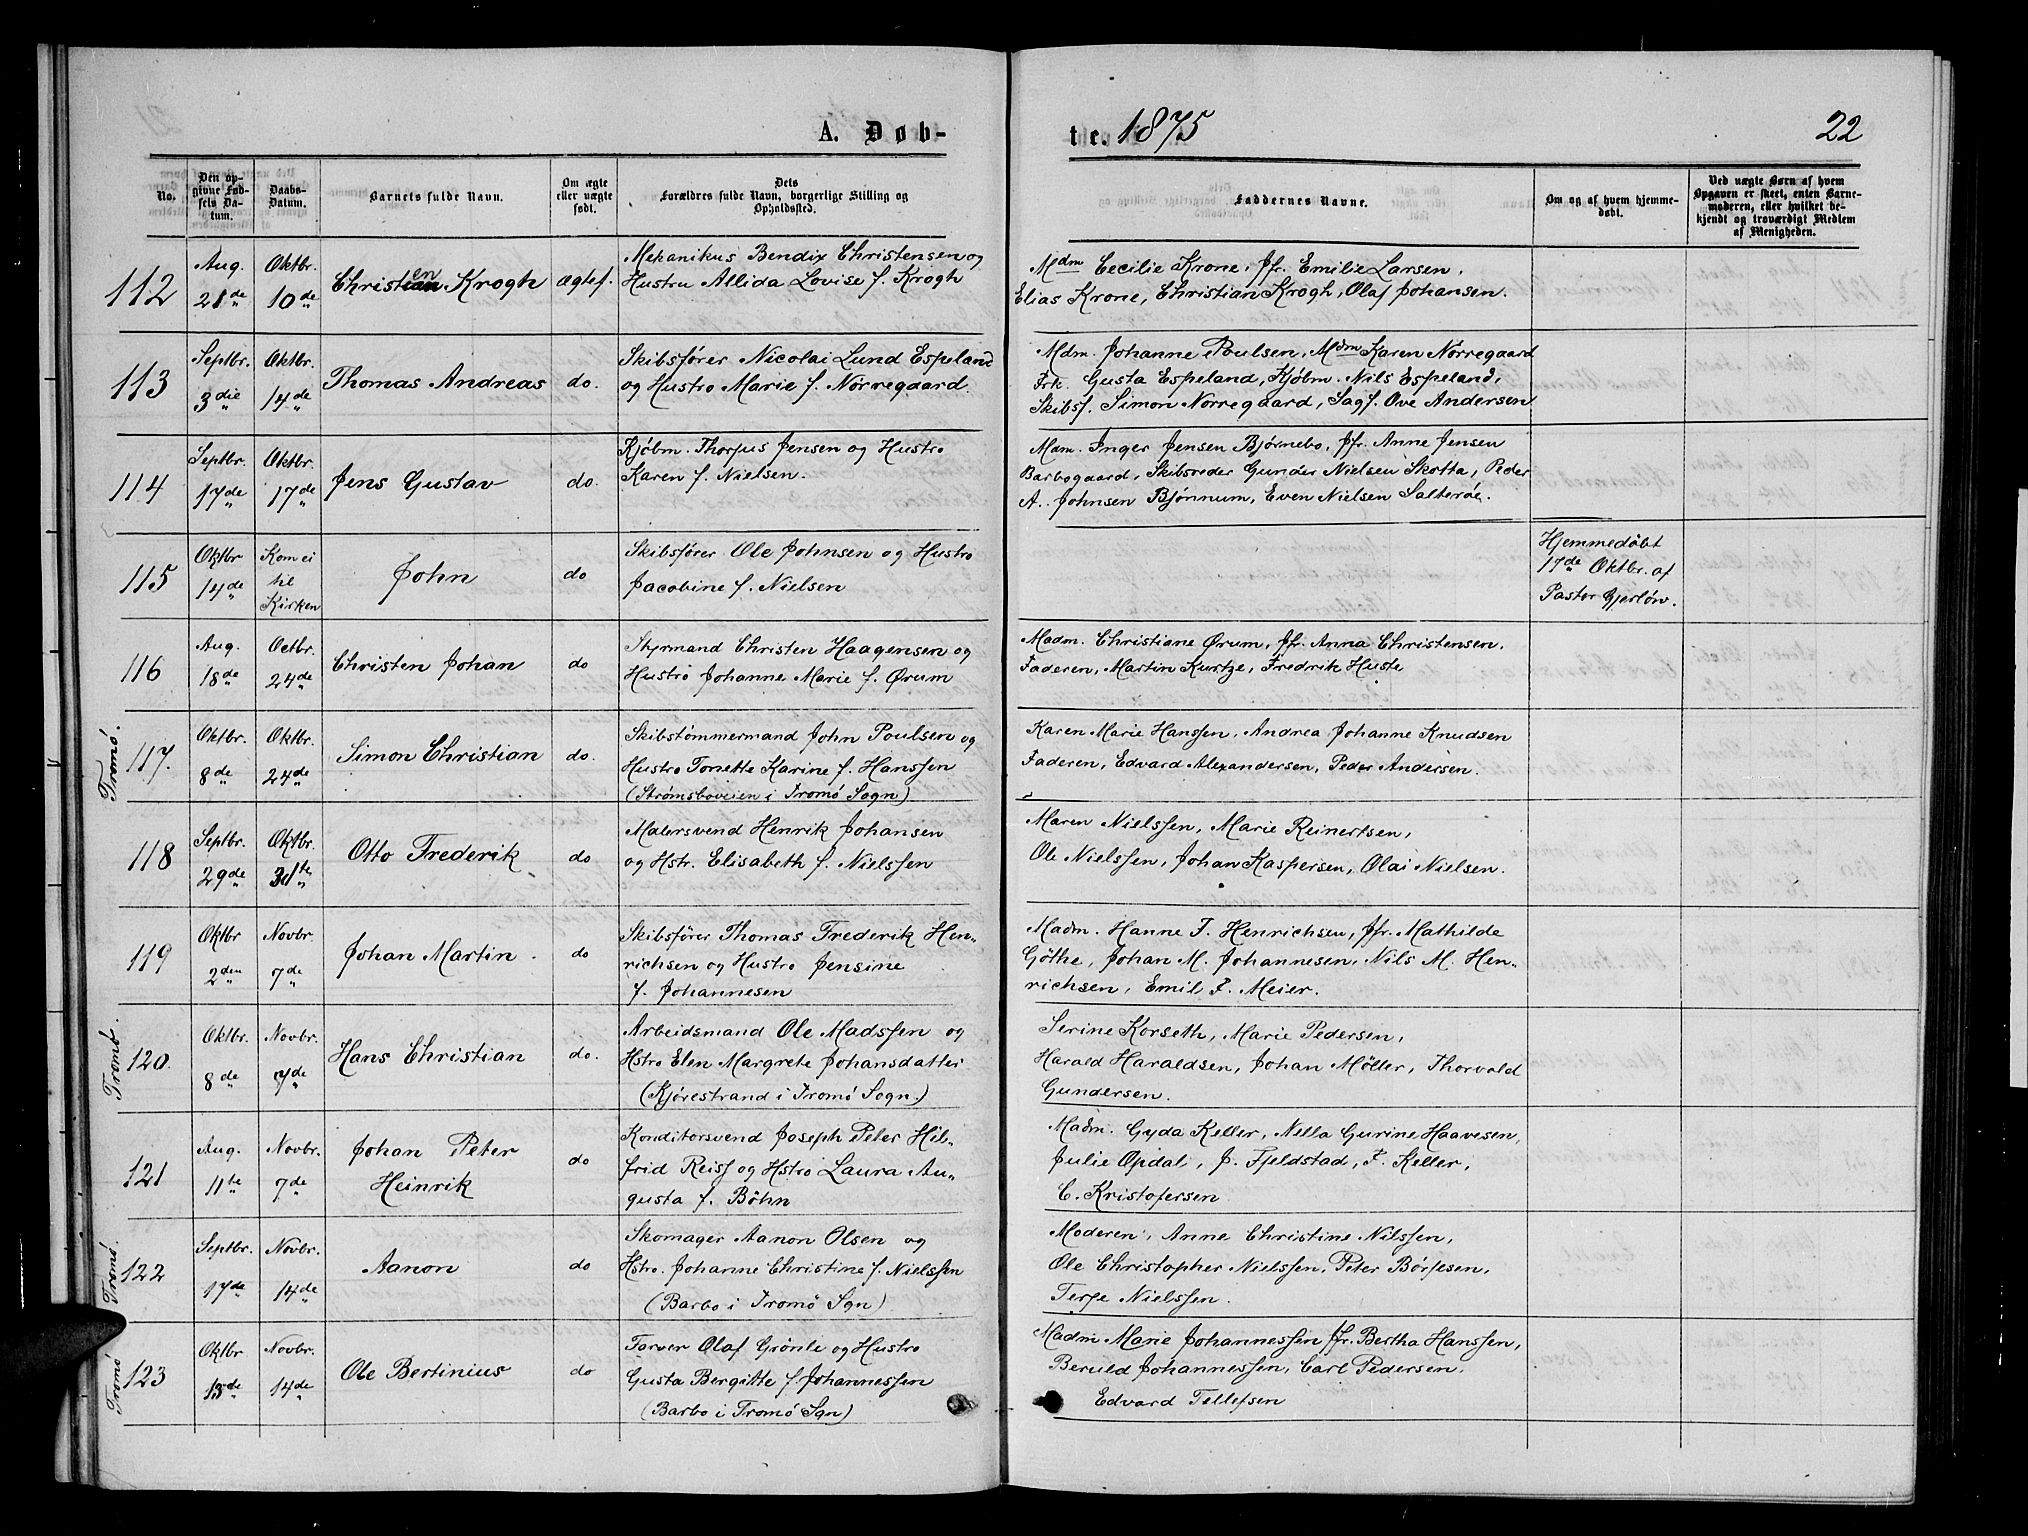 A. Døb-
te. 1875
22
No.
Den op-
givne Fød-
sels Da-
tum.
Daabs-
Datum.
Barnets fulde Navn.
Om ægte
eller uægte
født.
Dets
Forældres fulde Navn, borgerlige Stilling og
Opholdssted.
Faddernes Navne.
Om og af hvem hjemme-
døbt.
Ved uægte Børn af hvem
Opgaven er skeet, enten Barne-
moderen, eller hvilket be-
kjendt og troværdigt Medlem
af Menigheden.
112
Aug.
21de
Oktbr.
10de
Christen Krogh
ægtef.
Mekanikus Bendix Christensen og
Hustru Allida Lovise f. Krogh
Mdm Cecilie Krone, Jfr. Emilie Larsen,
Elias Krone, Christian Krogh, Olaf Johansen.
113
Septbr.
3die
Oktbr.
14de
Thomas Andreas
do.
Skibsfører Nicolai Lund Espeland
og Hustro Marie f. Nørregaard
Mdm. Johanne Poulsen, Mdm Karen Nørregaard
Frk. Gusta Espeland, Kjøbm. Nils Espeland,
Skibsf. Simon Nørregaard, Sagf. Ove Andersen
114
Septbr.
17de
Oktbr.
17de
Jens Gustav
do.
Kjøbm. Thorjus Jensen og Hustro
Karen f. Nielsen.
Mdm. Inger Jensen Bjørnebo, Jfr. Anne Jensen
Barbogaard, Skibsreder Gunder Nielsen Skotta, Peder
A. Johnsen Bjønnum, Even Nielsen Salterøe.
115
Oktbr
14de
Kom ei
til
Kirken
John
do
Skibsfører Ole Johnsen og Hustro
Jacobine f. Nielsen
Hjemmedøbt
17de Oktbr. af
Pastor Gjerløw.
116
Aug.
18de
Octbr.
24de
Christen Johan
do
Styrmand Christen Haagensen og
Hustro Johanne Marie f. Ørum
Madm. Christiane Ørum, Jfr. Anna Christensen,
Faderen, Martin Kurtze, Fredrik Huste
Tromø.
117.
Oktbr.
8de
Oktbr.
24de
Simon Christian
do.
Skibstømmermand John Poulsen og
Hustro Tonette Karine f. Hanssen
(Strømsboveien i Tromø Sogn)
Karen Marie Hanssen, Andrea Johanne Knudsen
Faderen, Edvard Alexandersen, Peder Andersen.
118
Septbr.
29de
Oktbr.
31te
Otto Frederik
do
Malersvend Henrik Johansen
og Hstr. Elisabeth f. Nielssen
Maren Nielssen, Marie Reinertsen,
Ole Nielssen, Johan Kaspersen, Olai Nielsen.
119
Oktbr
2den
Novbr.
7de
Johan Martin
do
Skibsfører Thomas Frederik Hen-
richsen og Hustro Jensine
f. Johannesen
Madm. Hanne F. Henrichsen, Jfr. Mathilde
Gøthe, Johan M. Johannesen, Nils M. Hen-
richsen, Emil F. Meier.
Tromø.
120.
Oktbr.
8de
Novbr.
7de
Hans Christian
do.
Arbeidsmand Ole Madssen og
Hstro Elen Margrete Johansdatter
(Kjørestrand i Tromø Sogn.)
Serine Korseth, Marie Pedersen,
Harald Haraldsen, Johan Møller, Thorvald
Gundersen.
121
Aug.
11te
Novbr.
7de
Johan Peter
Heinrik
do
Konditorsvend Joseph Peter Hil-
frid Reiss og Hstro Laura Au-
gusta f. Bøhn
Madm. Gyda Keller, Nella Gurine Haavesen,
Julie Opdal, J. Fjeldstad, F. Keller,
C. Kristofersen
Tromø.
122
Septbr.
17de
Novbr.
14de
Aanon
do
Skomager Aanon Olsen og
Hstro. Johanne Christine f. Nielssen
(Barbo i Tromø Sgn)
Moderen, Anne Christine Nilssen,
Ole Christopher Nielssen, Peter Børjesen,
Terje Nielssen.
Tromø
123
Oktbr
13de
Novbr.
14de
Ole Bertinius
do
Farver Olaf Grønle og Hustro
Gusta Bergitte f. Johannessen
(Barbo i Tromø Sgn)
Madm Marie Johannessen Jfr. Bertha Hanssen,
Beruld Johannessen, Carl Pedersen,
Edvard Tellefsen